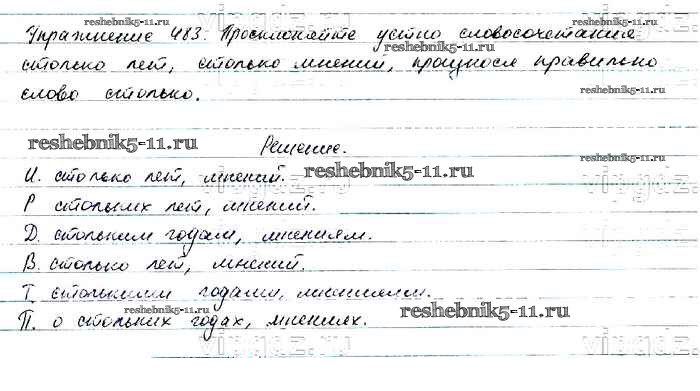 reshebnik5-11.ru
Упражнение 483. Просклоняйте устно словосочетания
reshebnik5-11.ru
столько лет, столько мнений, произнося правильно
слово столько.
reshebnik5-11.ru
reshebnik5-11.ru
Решение.
И. столько лет, мнений.
reshebnik5-11.ru
Р стольких лет, мнений.
reshebnik5-11.ru
Д. стольким годам, мнениям.
В. столько лет, мнений.
Т. столькими годами, мнениями.
reshebnik5-11.ru
П. о стольких годах, мнениях.
reshebnik5-11.ru
reshebnik5-11.ru